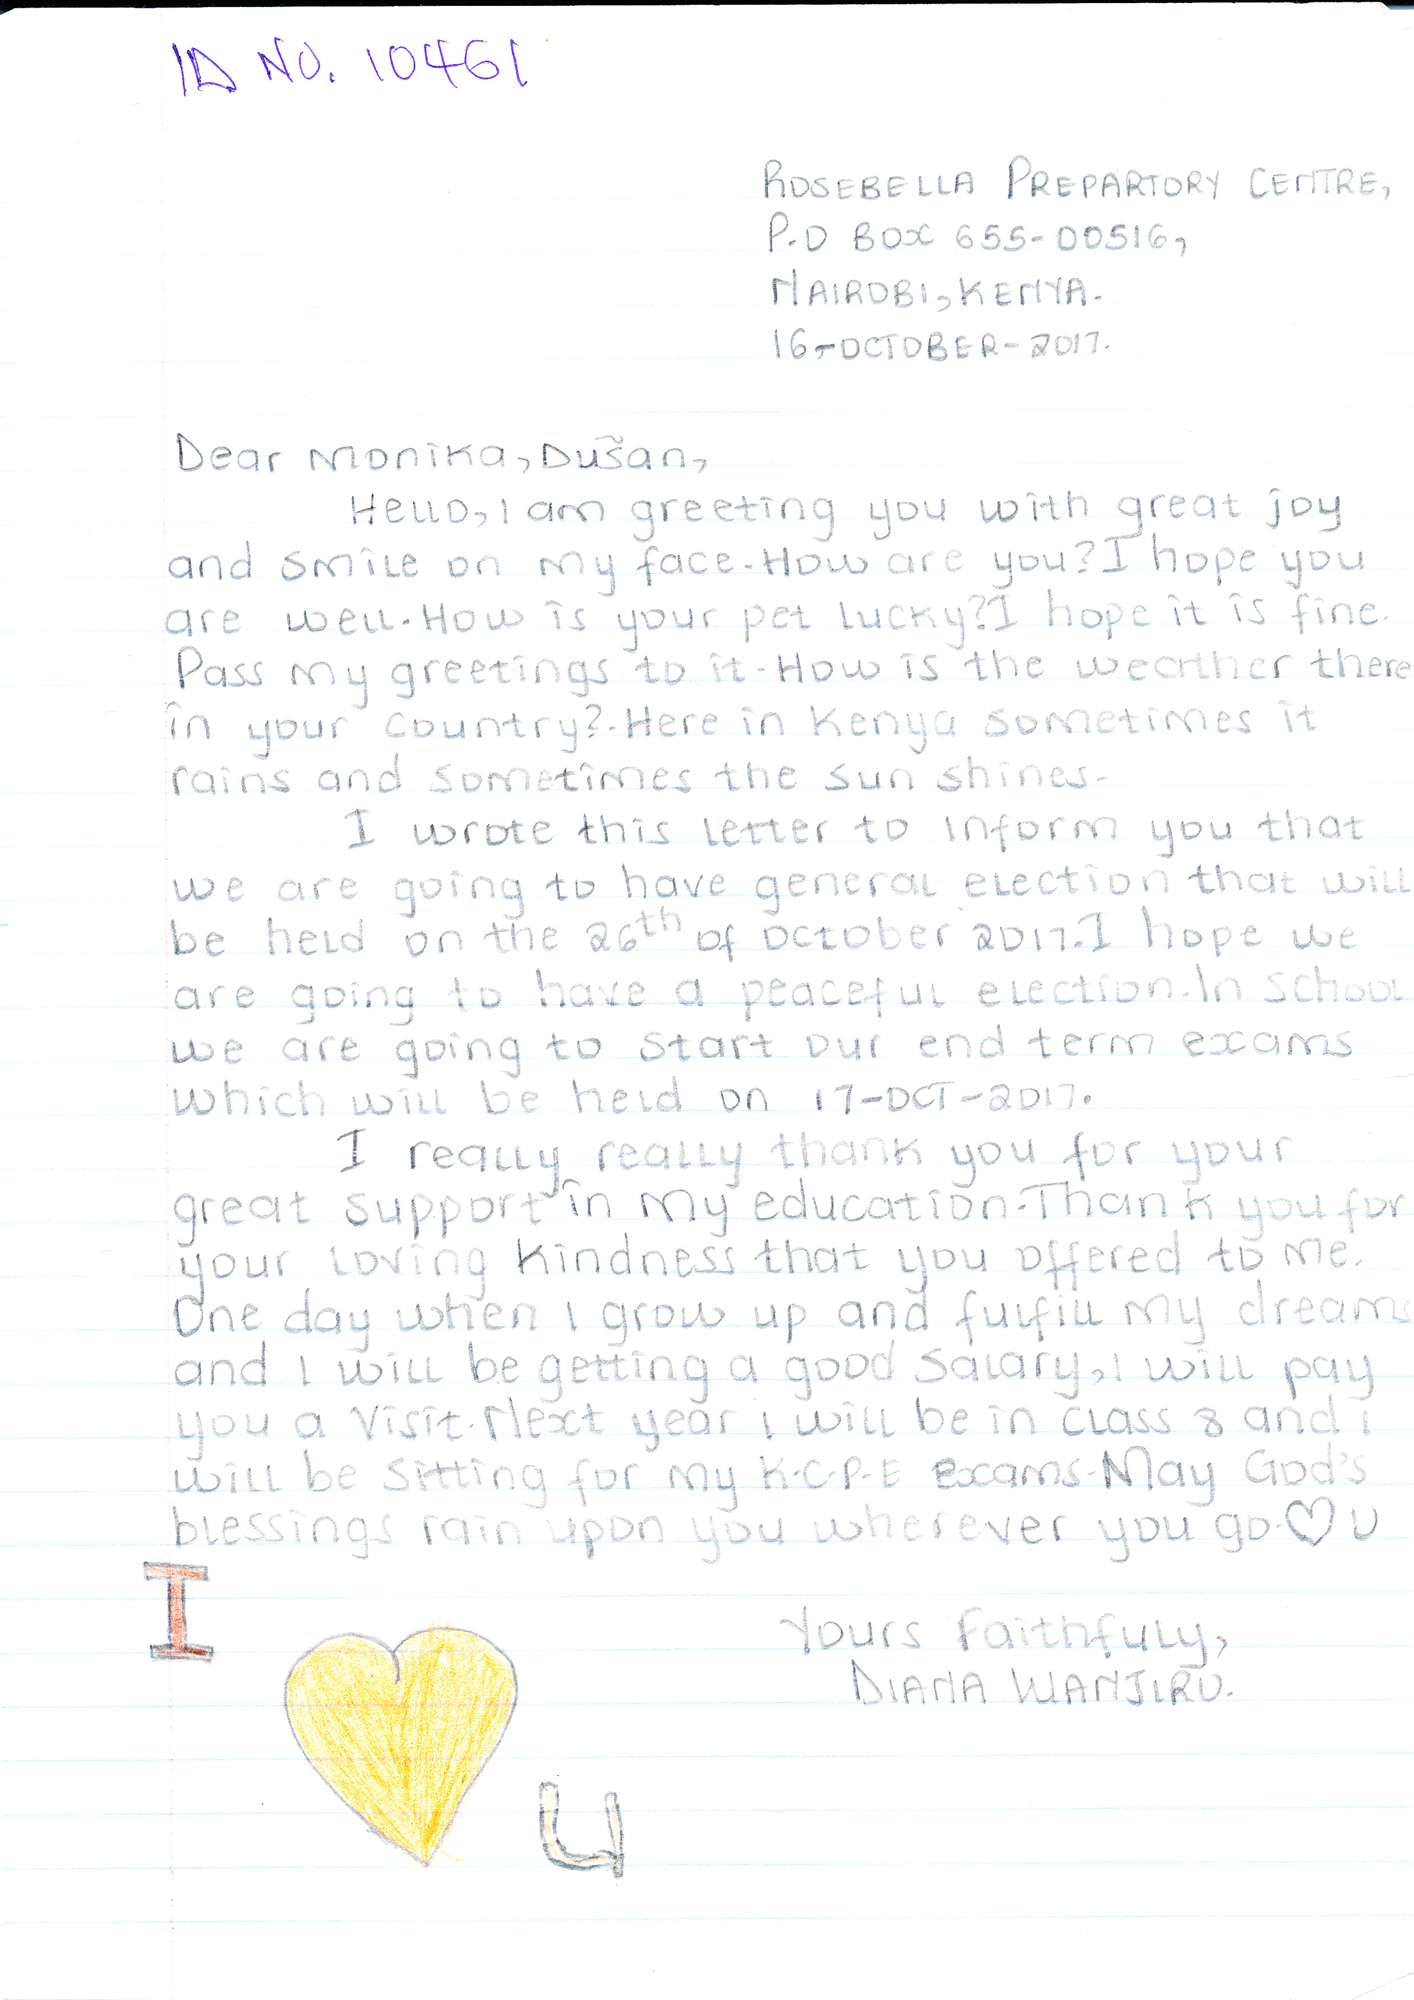 ID NO. 10461
ROSEBELLA PREPARTORY CENTRE,
P.O BOX 655-00516,
NAIROBI, KENYA.
16-OCTOBER-2017.
Dear Monika, Dušan,
Hello, I am greeting you with great joy
and smile on my face. How are you? I hope you
are well. How is your pet lucky? I hope it is fine.
Pass my greetings to it. How is the wearther there
in your country?. Here in Kenya sometimes it
rains and sometimes the sun shines.
I wrote this letter to inform you that
we are going to have general election that will
be held on the 26th of october 2017. I hope we
are going to have a peaceful election. In school
we are going to start our end term exams
which will be held on 17-OCT-2017.
I really really thank you for your
great support in my education. Thank you for
your loving kindness that you offered to me.
One day when I grow up and fulfill my dreams
and I will be getting a good salary, I will pay
you a visit. Next year I will be in class 8 and i
will be sitting for my K.C.P.E exams. May God's
blessings rain upon you wherever you go. ♡ U
Yours Faithfuly,
DIANA WANJIRU.
I
U